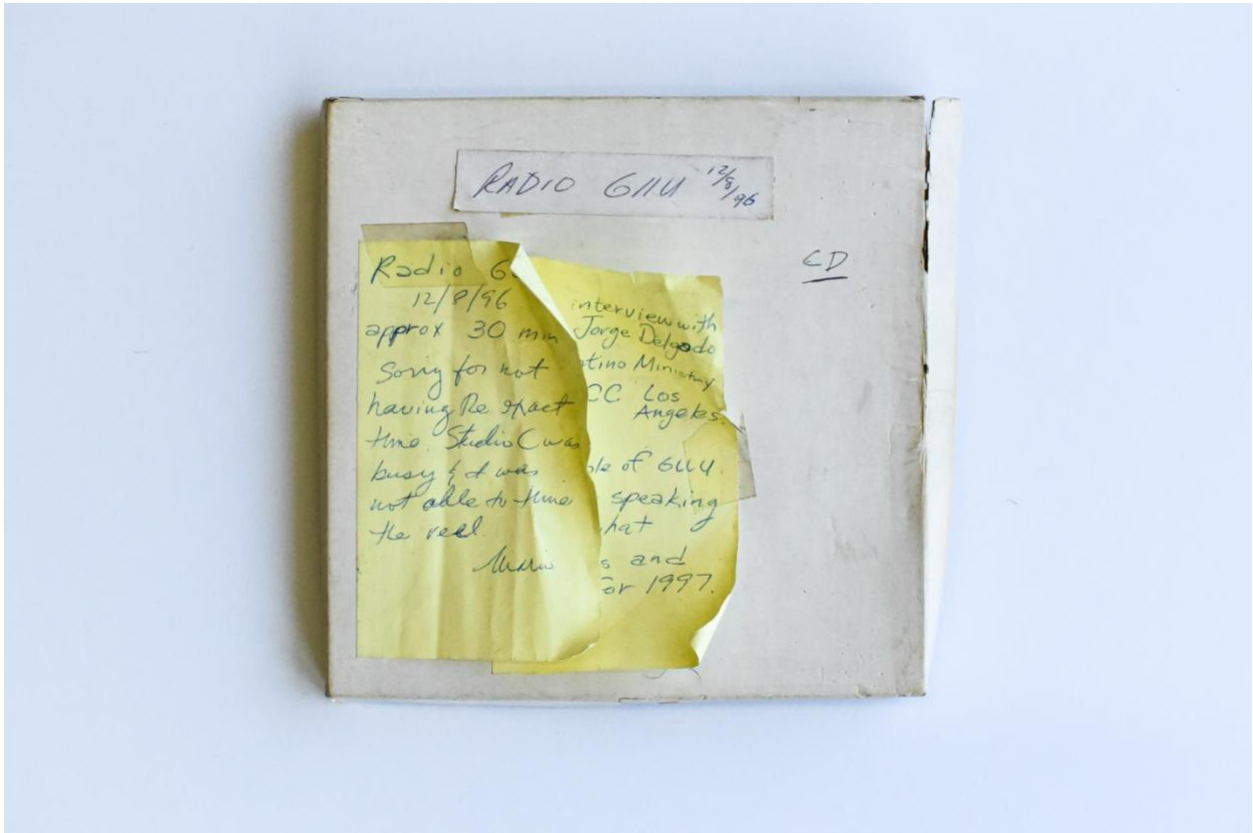 RADIO GLLU 12/8/96
CD
Radio G
12/8/96
approx 30 min
Sorry for not
having the exact
time. Studio C was
busy & I was
not able to time
the reel.
interview with
Jorge Delgado
tino Ministry
CC Los
Angeles.
ole of GLLU
speaking
hat
s and
for 1997.